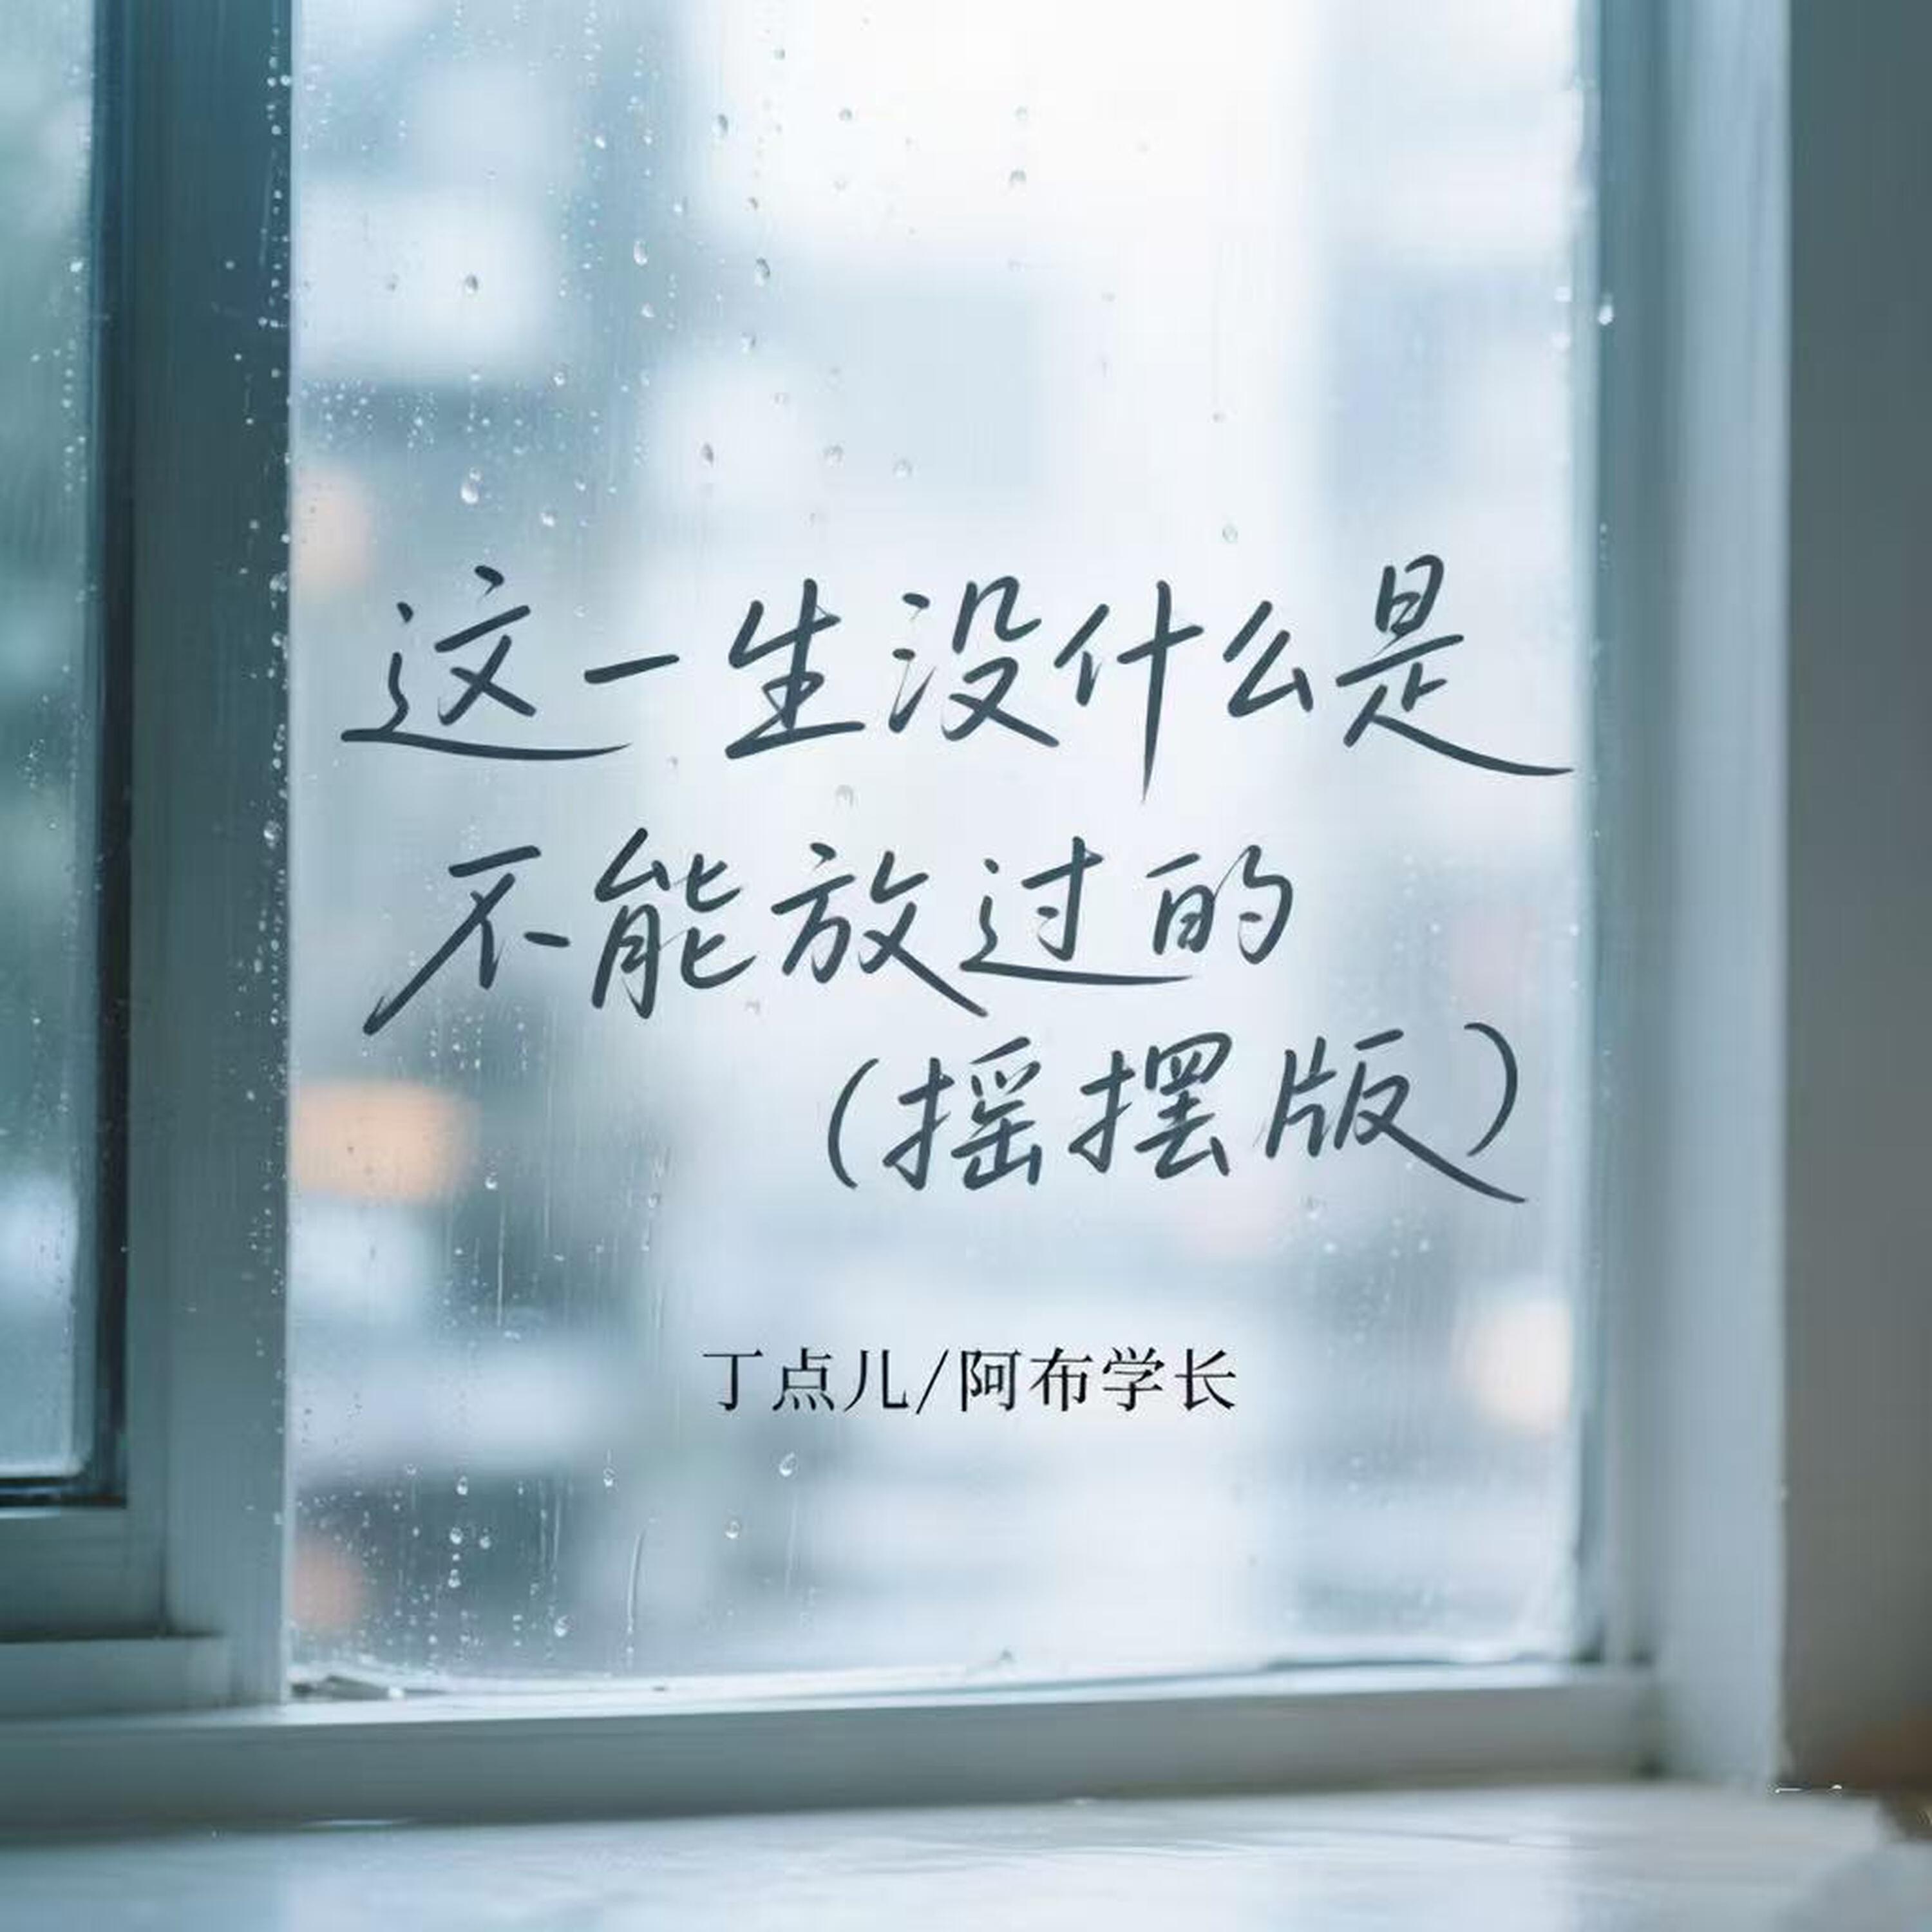 这一生没什么是
不能放过的
(摇摆版)
丁点儿/阿布学长